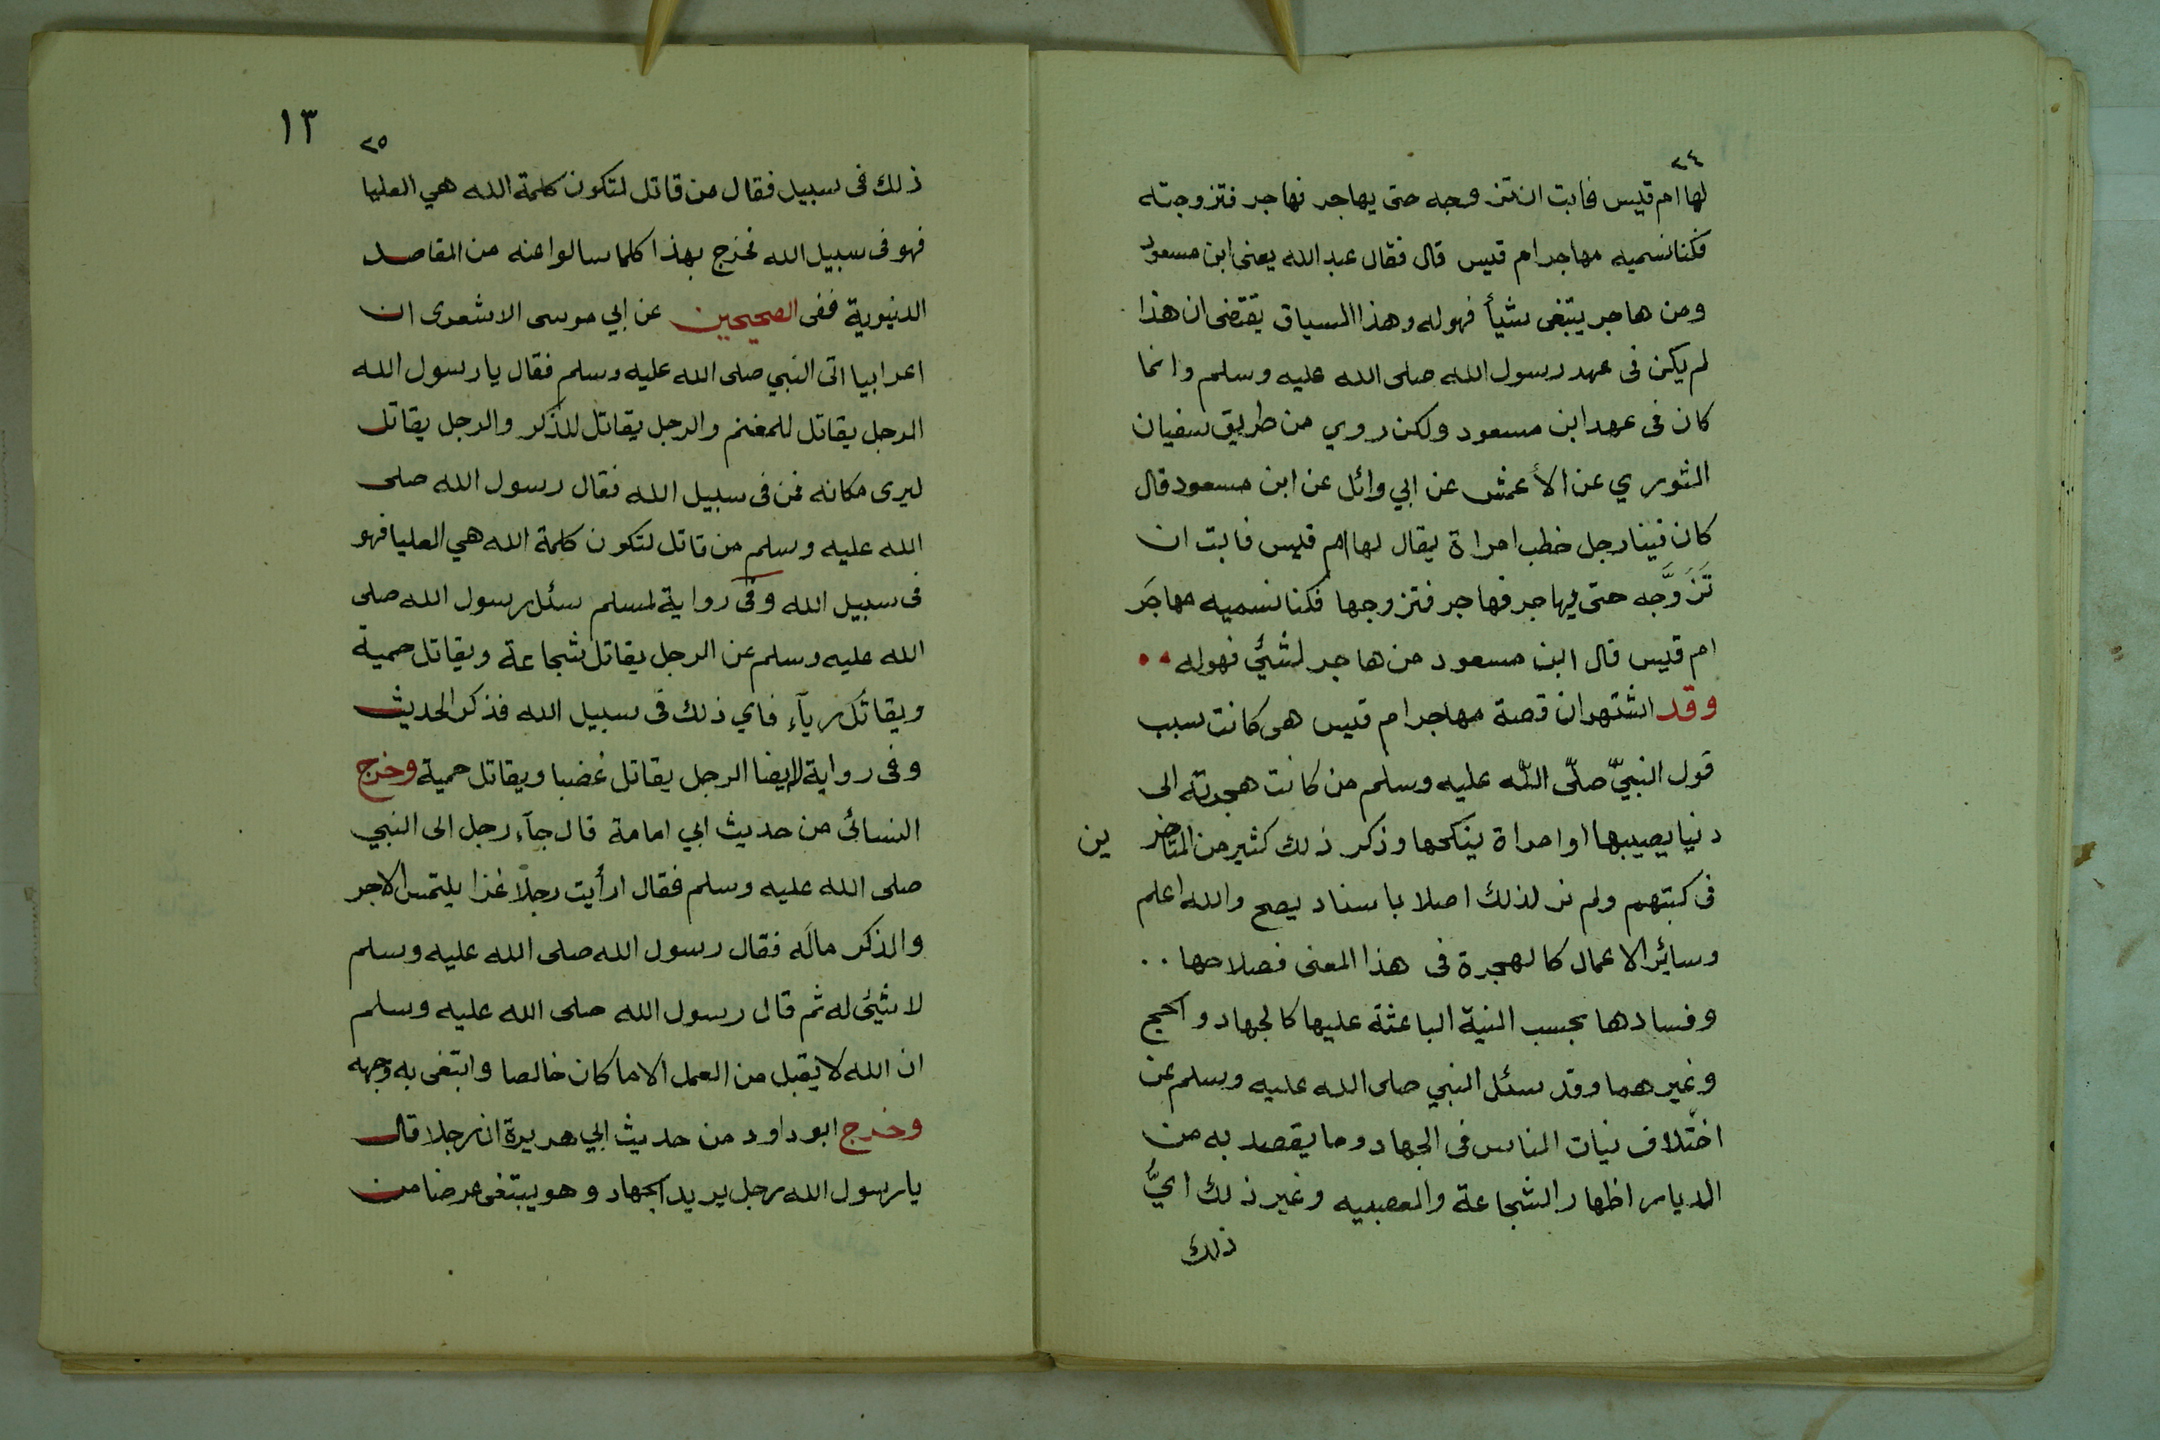 ٢٤
لها ام قيس فابت ان تتزوجه حتى يهاجر فهاجر فتزوجته
فكنا نسميه مهاجر ام قيس قال فقال عبد الله يعنى ابن مسعود
ومن هاجر يبتغى شيأ فهو له وهذا السياق يقتضى ان هذا
لم يكن فى عهد رسول الله صلى الله عليه وسلم وانما
كان فى عهد ابن مسعود ولكن روي من طريق سفيان
الثوري عن الأعمش عن ابي وائل عن ابن مسعود قال
كان فينا رجل خطب امراة يقال لها ام قيس فابت ان
تَزَوَّجه حتى يهاجر فهاجر فتزوجها فكنا نسميه مهاجَر
ام قيس قال ابن مسعود من هاجر لشئ فهو له
وقد اشتهر ان قصة مهاجر ام قيس هى كانت سبب
قول النبيّ صلّى اللّه عليه وسلم من كانت هجرته الى
دنيا يصيبها او امراة ينكحها وذكر ذلك كثير من المتاخرين
فى كتبهم ولم نر لذلك اصلا باسناد يصح والله اعلم
وسائر الاعمال كالهجرة فى هذا المعنى فصلاحها ..
وفسادها بحسب النية الباعثة عليها كالجهاد والحج
وغيرهما وقد سئل النبي صلى الله عليه وسلم عن
اختلاف نيات الناس فى الجهاد وما يقصد به من
الديار اظهار الشجاعة والعصبيه وغير ذلك ايُّ
ذلك
١٣
٢٥
ذلك فى سبيل فقال من قاتل لتكون كلمة الله هي العليا
فهو فى سبيل الله فخرج بهذا كلما سالوا عنه من المقاصد
الدنيوية ففى الصحيحين عن ابي موسى الاشعرى ان
اعرابيا اتى النبي صلى الله عليه وسلم فقال يا رسول الله
الرجل يقاتل للمغنم والرجل يقاتل للذكر والرجل يقاتل
ليرى مكانه فمن فى سبيل الله فقال رسول الله صلى
الله عليه وسلم من قاتل لتكون كلمة الله هي العليا فهو
فى سبيل الله وفى رواية لمسلم سئل رسول الله صلى
الله عليه وسلم عن الرجل يقاتل شجاعة ويقاتل حمية
ويقاتل رياء فاي ذلك فى سبيل الله فذكر الحديث
وفى رواية له ايضا الرجل يقاتل غضبا ويقاتل حمية وخرج
النسائى من حديث ابي امامة قال جآء رجل الى النبي
صلى الله عليه وسلم فقال ارأيت رجلا غزا يلتمس الاجر
والذكر مالَه فقال رسول الله صلى الله عليه وسلم
لا شيئ له ثم قال رسول الله صلى الله عليه وسلم
ان الله لا يقبل من العمل الا ما كان خالصا وابتغى به وجهه
وخرج ابو داود من حديث ابي هريرة ان رجلا قال
يا رسول الله رجل يريد الجهاد وهو يبتغى عرضا من